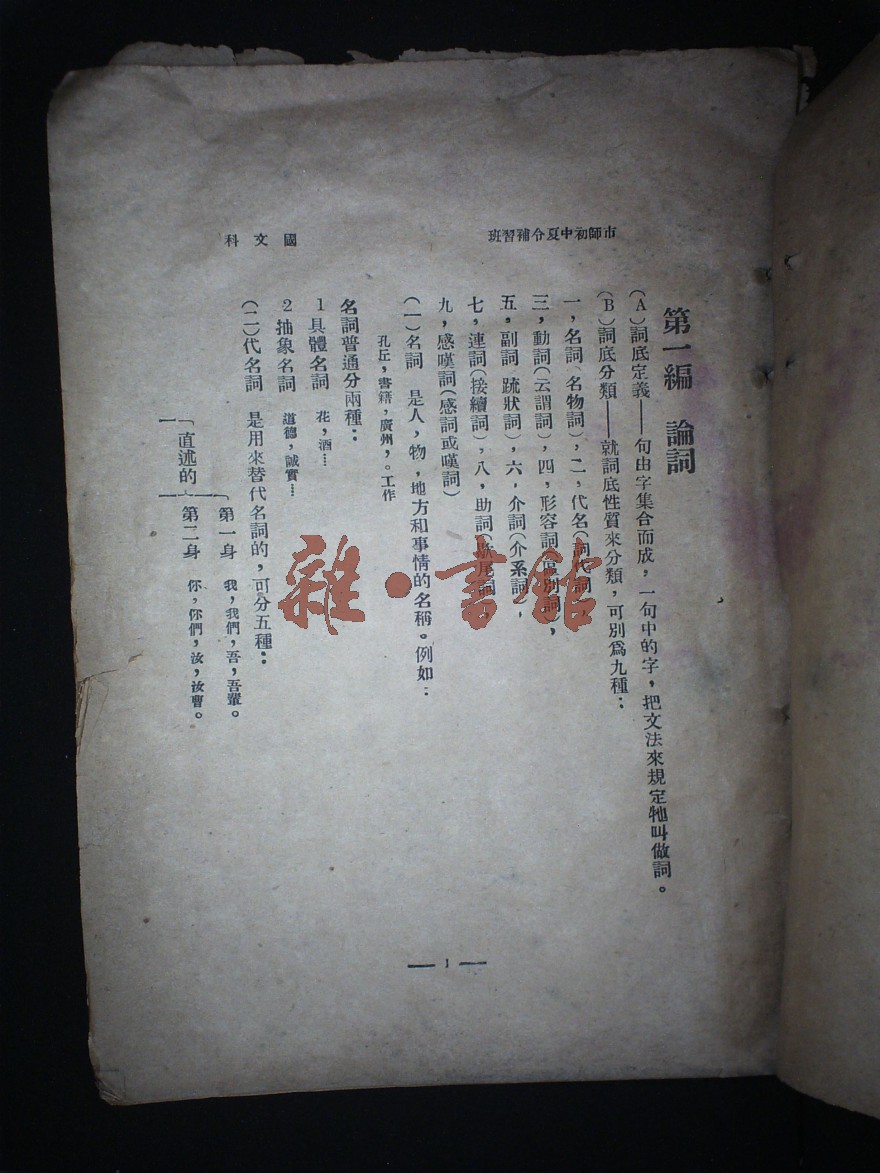 市師初中夏令補習班
國文科
第一編　論詞
(A)詞底定義——句由字集合而成，一句中的字，把文法來規定牠叫做詞。
(B)詞底分類——就詞底性質來分類，可別爲九種：
一，名詞(名物詞)，二，代名(詞代詞)，
三，動詞(云謂詞)，四，形容詞(區別詞)，
五，副詞　疏狀詞)，六，介詞(介系詞)，
七，連詞(接續詞)，八，助詞(
九，感嘆詞(感詞或嘆詞)
(一)名詞　是人，物，地方和事情的名稱。例如：
孔丘，書籍，廣州，。工作
名詞普通分兩種：
1具體名詞　花，酒…
2抽象名詞　道德，誠實…
(二)代名詞　是用來替代名詞的，可分五種：
第一身　我，我們，吾，吾輩。
直述的
第二身　你，你們，汝，汝曹。
一
— 1 —
雜·書館